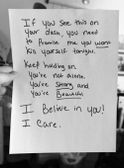 If you see this on
your desk, you need
to Promise me you wont
kill yourself tonight.
Keep holding on.
You're not alone.
You're Strong and
You're Beautiful.
I Believe in you!
I Care.